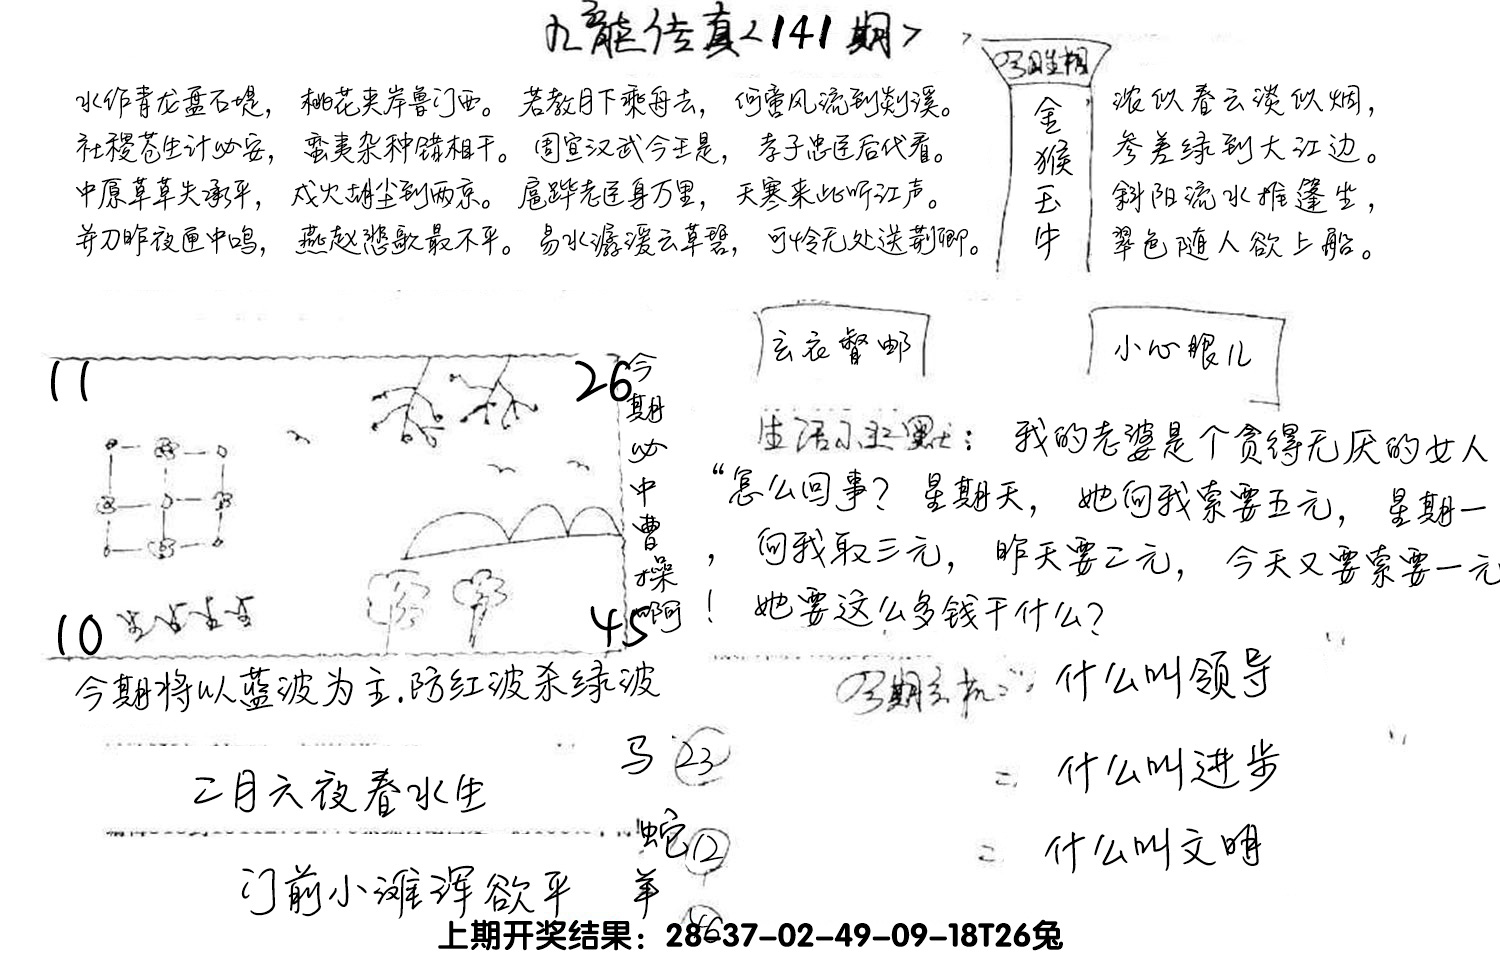 九龙传真<141期>
水作青龙盘石堤，桃花夹岸鲁门西。若教月下乘舟去，何啻风流到剡溪。
社稷苍生计必安，蛮夷杂种错相干。周宣汉武今王是，孝子忠臣后代看。
中原草草失承平，戍火胡尘到两京。扈跸老臣身万里，天寒来此听江声。
并刀昨夜匣中鸣，燕赵悲歌最不平。易水潺湲云草碧，可怜无处送荆卿。
金猴玉牛
浓似春云淡似烟，
参差绿到大江边。
斜阳流水推篷坐，
翠色随人欲上船。
玄衣督邮
小心眼儿
11
26
10
45
今期必中曹操啊
生活小幽默：我的老婆是个贪得无厌的女人
“怎么回事？星期天，她向我索要五元，星期一
，向我取三元，昨天要二元，今天又要索要一元
！她要这么多钱干什么？
今期将以蓝波为主.防红波杀绿波
二月六夜春水生
门前小滩浑欲平
马 23
蛇 12
羊 46
今期玄机：什么叫领导
= 什么叫进步
= 什么叫文明
上期开奖结果：28-37-02-49-09-18T26兔